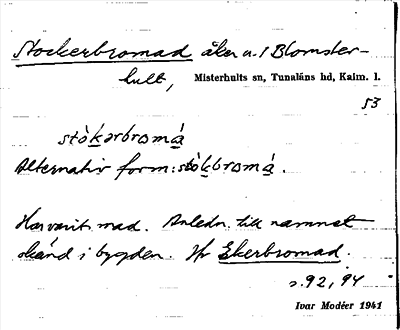 Stockerbromad åker u. / Blomster-
hult, Misterhults sn, Tunaläns hd, Kalm. l.
53
stòkərbromá
Alternativ form: stòkbromá.
Har varit mad. Anledn. till namnet
okänd i bygden. Jfr Ekerbromad.
s. 92, 94
Ivar Modéer 1941